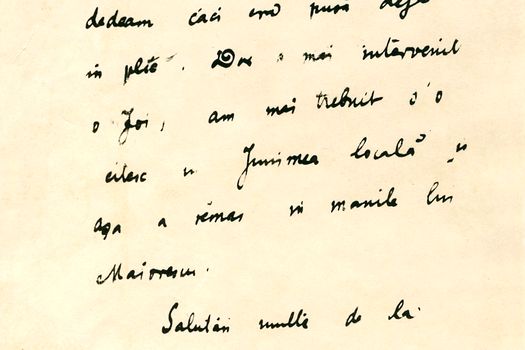 dedeam căci era pusă deja
în plic. Dar a mai intervenit
o Joi, am mai trebuit s'o
citesc în Junimea locală și
așa a rămas în manile lui
Maiorescu.
Salutări multe de la